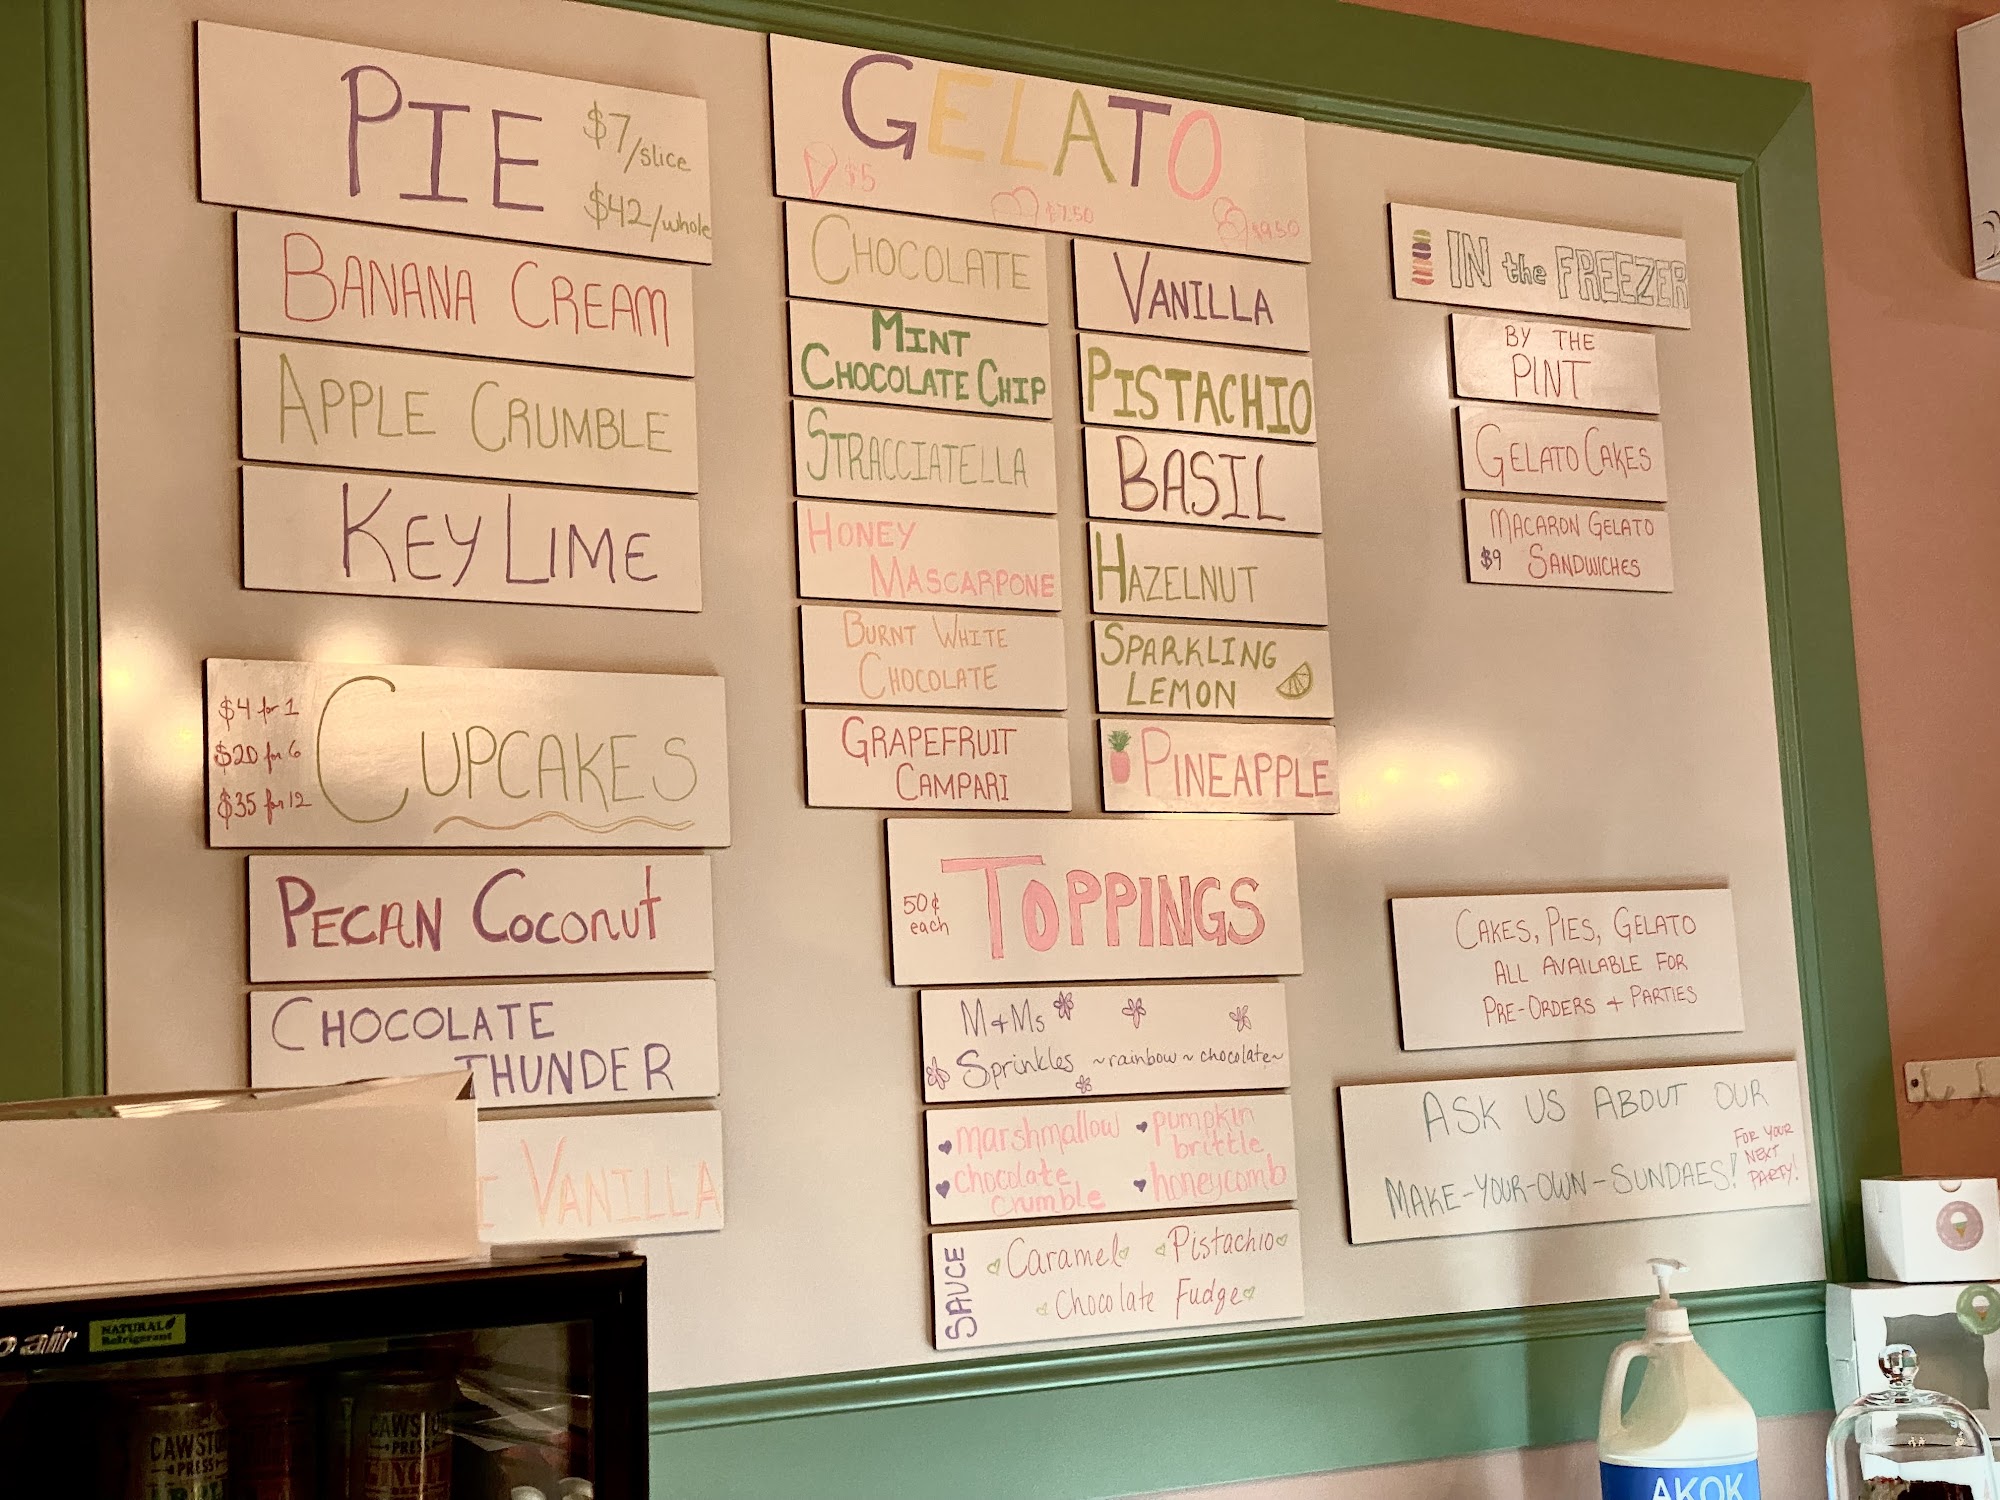 PIE $7/slice
$42/whole
BANANA CREAM
APPLE CRUMBLE
KEY LIME
$4 for 1
$20 for 6
$35 for 12
CUPCAKES
PECAN COCONUT
CHOCOLATE
THUNDER
VANILLA
GELATO
$5 $7.50 $9.50
CHOCOLATE
MINT
CHOCOLATE CHIP
STRACCIATELLA
HONEY
MASCARPONE
BURNT WHITE
CHOCOLATE
GRAPEFRUIT
CAMPARI
VANILLA
PISTACHIO
BASIL
HAZELNUT
SPARKLING
LEMON
PINEAPPLE
50¢
each
TOPPINGS
M+Ms
Sprinkles ~rainbow~chocolate~
marshmallow
chocolate
crumble
pumpkin
brittle
honeycomb
SAUCE
Caramel Pistachio
Chocolate Fudge
IN the FREEZER
BY THE
PINT
GELATO CAKES
MACARON GELATO
$9 SANDWICHES
CAKES, PIES, GELATO
ALL AVAILABLE FOR
PRE-ORDERS + PARTIES
ASK US ABOUT OUR
MAKE-YOUR-OWN-SUNDAES!
FOR YOUR
NEXT
PARTY!
air
NATURAL
Refrigerant
PRESS
PRESS
AKOK